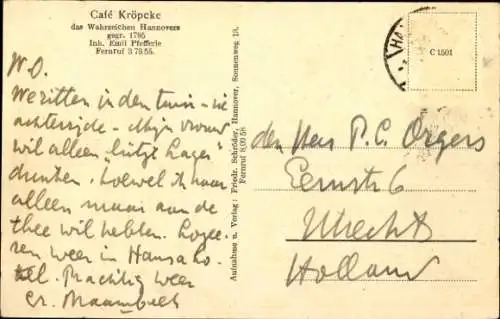 Café Kröpcke
das Wahrzeichen Hannovers
gegr. 1795
Inh. Emil Pfefferle
Fernruf 3 78 55.
W. O.
We zitten in den tuin - zie
achterzijde - Mijn vrouw
wil alleen "lütje Lagen"
drinken. Hoewel ik haar
alleen maar aan de
thee wil hebben. Logee-
ren weer in Hansa ho-
tel. Prachtig weer
Aufnahme u. Verlag: Friedr. Schröder, Hannover, Sonnenweg 18.
Fernruf 8 09 58
C 1501
den Heer P. C. Orgers
Eemstr 6
Utrecht
Holland